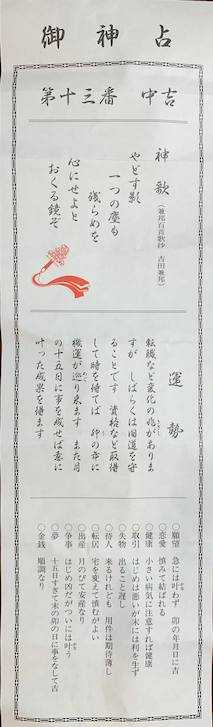 御神占
第十三番 中吉
神歌（兼邦百首歌抄 吉田兼邦）
やどす影
一つの塵も
残らめを
心にせよと
おくる鏡ぞ
運勢
転職など変化の兆がありま
すが しばらくは旧道を守
ることです 資格など取得
して時を待てば 卯の方に
機運が巡り来ます また月
の十五日に事を成せば意に
叶った成果を得ます
○願望 急には叶わず 卯の年月日に吉
○恋愛 慎みて結ばれる
○健康 小さい病気に注意すれば健康
○取引 はじめは悪いが末には利を生ず
○失物 出ること遅し
○待人 来るけれども 用件は期待薄し
○転居 宅を変えて慎むがよい
○出産 月のびて安産なり
○争事 はじめ凶だがついには叶う
○夢 十五日すぎて末の卯の日に事をなして吉
○金銭 順調なり